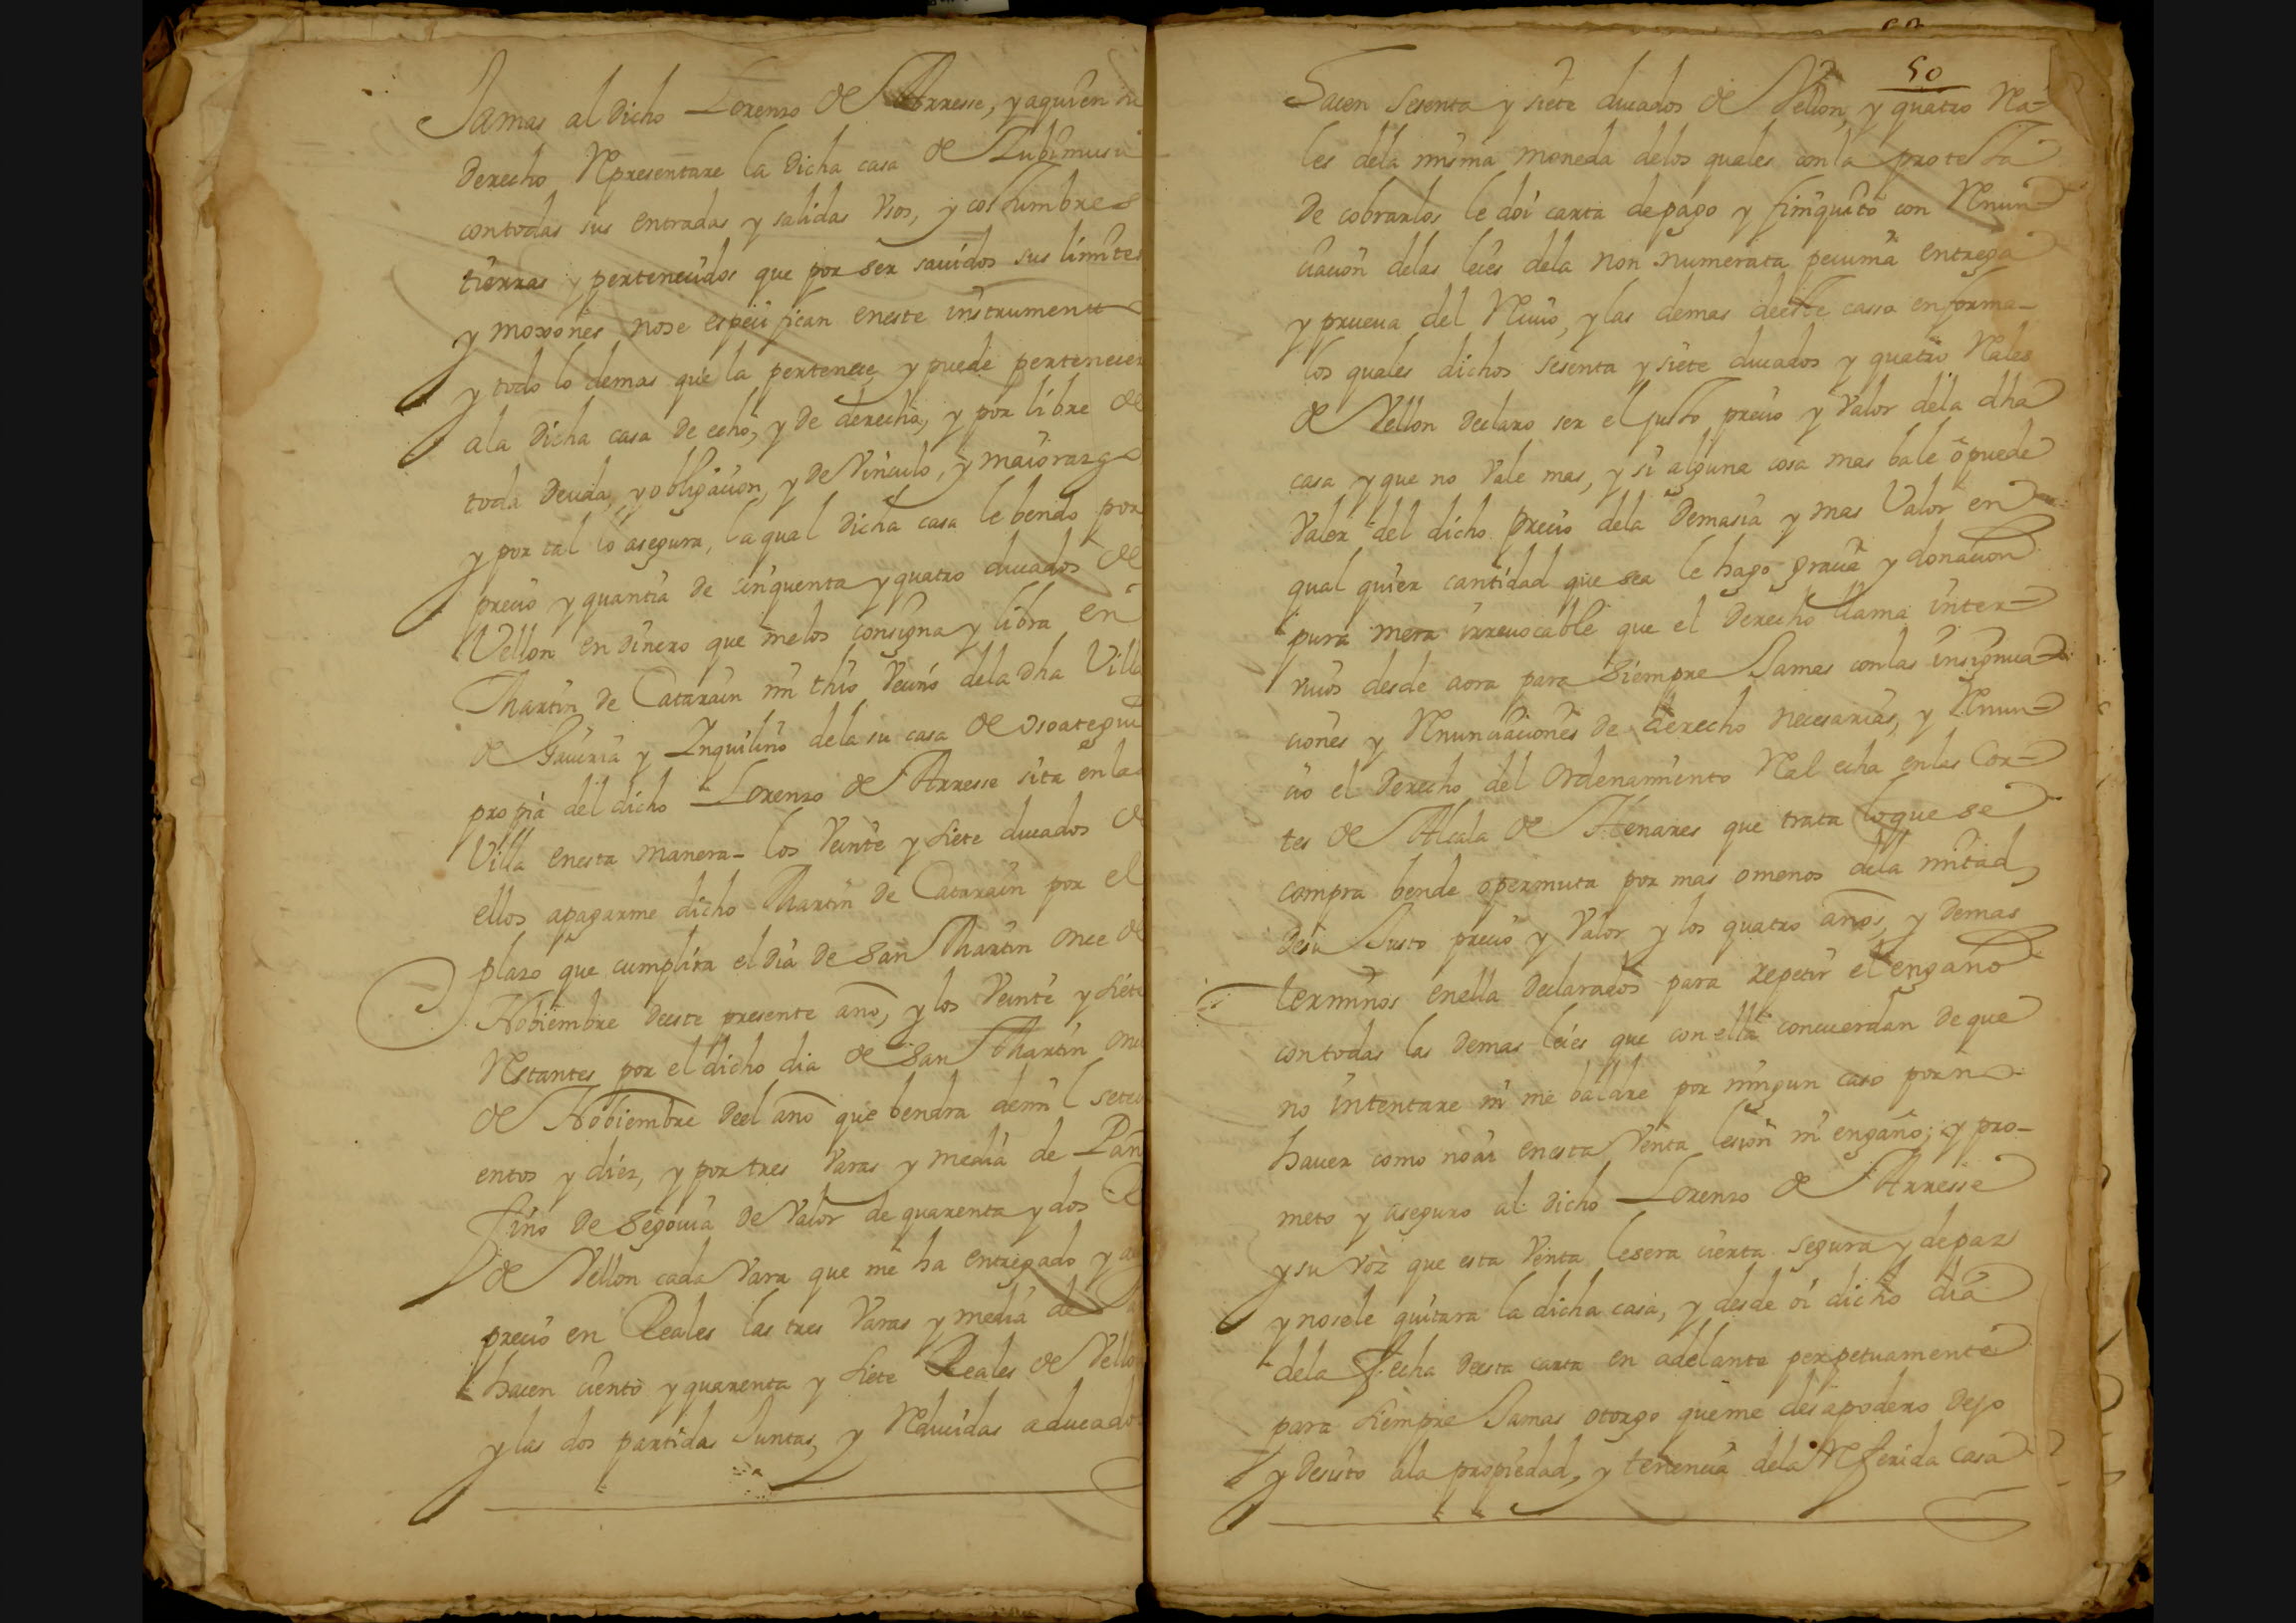 Jamas al dicho Lorenzo de Arresse, y aquien su
derecho Representare la dicha casa de Zubimusu
contodas sus entradas y salidas Vsos, y costumbres
tierras y pertenecidos que por ser sauidos sus limites
y moxones nose especifican eneste instrumento
y todo lo demas que la pertenece y puede pertenecer
ala dicha casa de echo, y de derecho, y por libre de
toda deuda, y obligacion, y de Vinculo, y maiorazgo
y por tal lo asegura, laqual dicha casa le bendo por
precio y quantia de cinquenta y quatro ducados de
Vellon en dinero que melos consigna y libra en
Martin de Catarain mi thio Vecino dela dha Villa
de Gauiria y Inquilino dela su casa de osoategui
propia del dicho Lorenzo de Arresse sita en la
Villa enesta manera- los Veinte y siete ducados de
ellos apagarme dicho Martin de Catarain por el
plazo que cumplira el dia de San Martin once de
Nobiembre deeste presente año, y los Veinte y siete
Restantes por el dicho dia de San Martin once
de Nobiembre deel año que bendra demil setezi
entos y diez, y por tres Varas y media de Pañ
fino de Segouia de Valor de quarenta y dos R
de Vellon cada Vara que me ha entregado y
precio en Reales las tres Varas y media de
hacen ciento y quarenta y siete Reales de Vellon
y las dos partidas Juntas, y Reducidas aducados
50
Hacen sesenta y siete ducados de Vellon, y quatro Rea=
les dela misma moneda delos quales conla protesta
de cobrarlos le doi carta depago y finiquito con Renun=
ciacion delas leies dela non numerata pecunia entrega
y prueua del Reciuo, y las demas deeste casso enforma-
los quales dichos sesenta y siete ducados y quatro Reales
de Vellon declaro ser el justo precio y Valor dela dha
casa y que no Vale mas, y si alguna cosa mas bale ô puede
Valer del dicho precio dela demasia y mas Valor en
qual quier cantidad que sea le hago gracia y donacion
pura mera irreuocable que el derecho llama inter=
viuos desde aora para Siempre Jamas conlas insignua=
ciones y Renunciaciones de derecho necesarias, y Renun=
cio el derecho del ordenamiento Real echa enlas Cor=
tes de Alcala de Henares que trata loque se
compra bende opermuta por mas omenos dela mitad
desu Justo precio y Valor y los quatro años, y demas
terminos enella declarados para repetir el engaño
contodas las demas leies que con ella concuerdan de que
no intentare ni me baldre por ningun caso por no
hauer como noai enesta Venta lesion ni engaño; y pro-
meto y aseguro al dicho Lorenzo de Arresse
y su voz que esta Venta lesera cierta segura y depaz
y nosele quitara la dicha casa, y desde oi dicho dia
dela fecha deesta carta en adelante perpetuamente
para siempre Jamas otorgo queme desapodero dejo
y desisto ala propiedad, y tenencia dela Referida casa